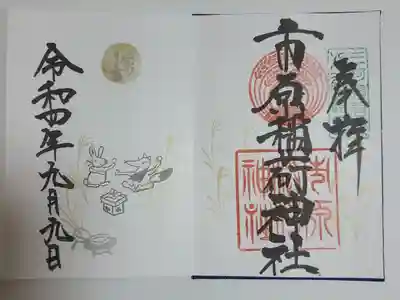 奉拝
市原稲荷神社
市原
神社
令和四年九月九日